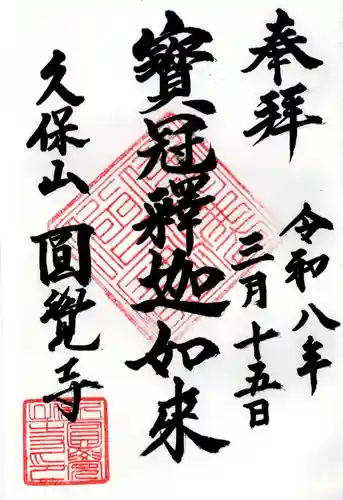 奉拝
令和八年
三月十五日
寶冠釋迦如来
久保山
圓覺寺